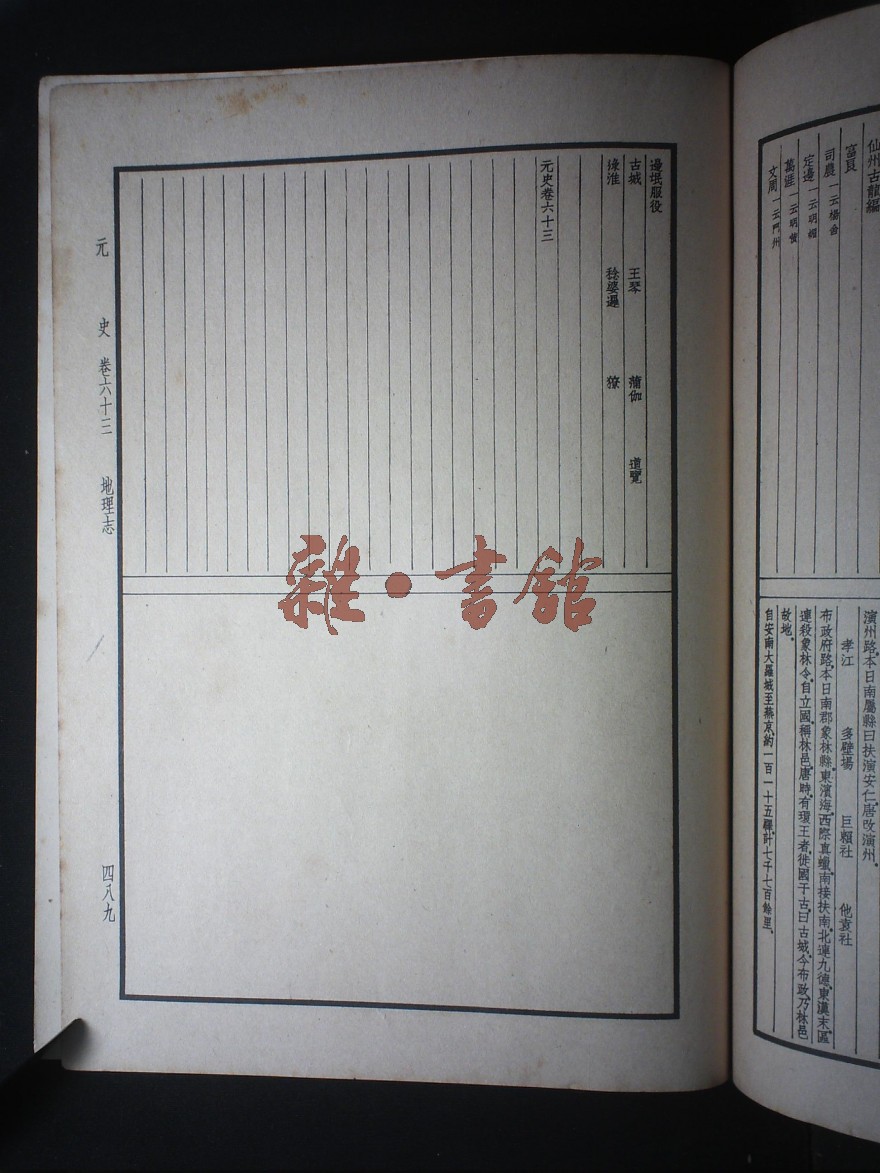 仙州古龍編
富良
司農一云楊舍
定邊一云明媚
萬涯一云明黄
文周一云門州
演州路、本日南屬縣曰扶演安仁、唐改演州。
孝江 多壁場 巨賴社 他袁社
布政府路、本日南郡象林縣、東濱海、西際真蠟、南接扶南、北連九德、東漢末、區
連殺象林令、自立國、稱林邑、唐時、有環王者、徙國于古、曰古城、今布政、乃林邑
故地。
自安南大羅城至燕京、約一百一十五驛、計七千七百餘里。
邊氓服役
古城 王琴 蒲伽 道覽
淥淮 稔婆邏 獠
元史卷六十三
元史 卷六十三 地理志 四八九
雜·書館